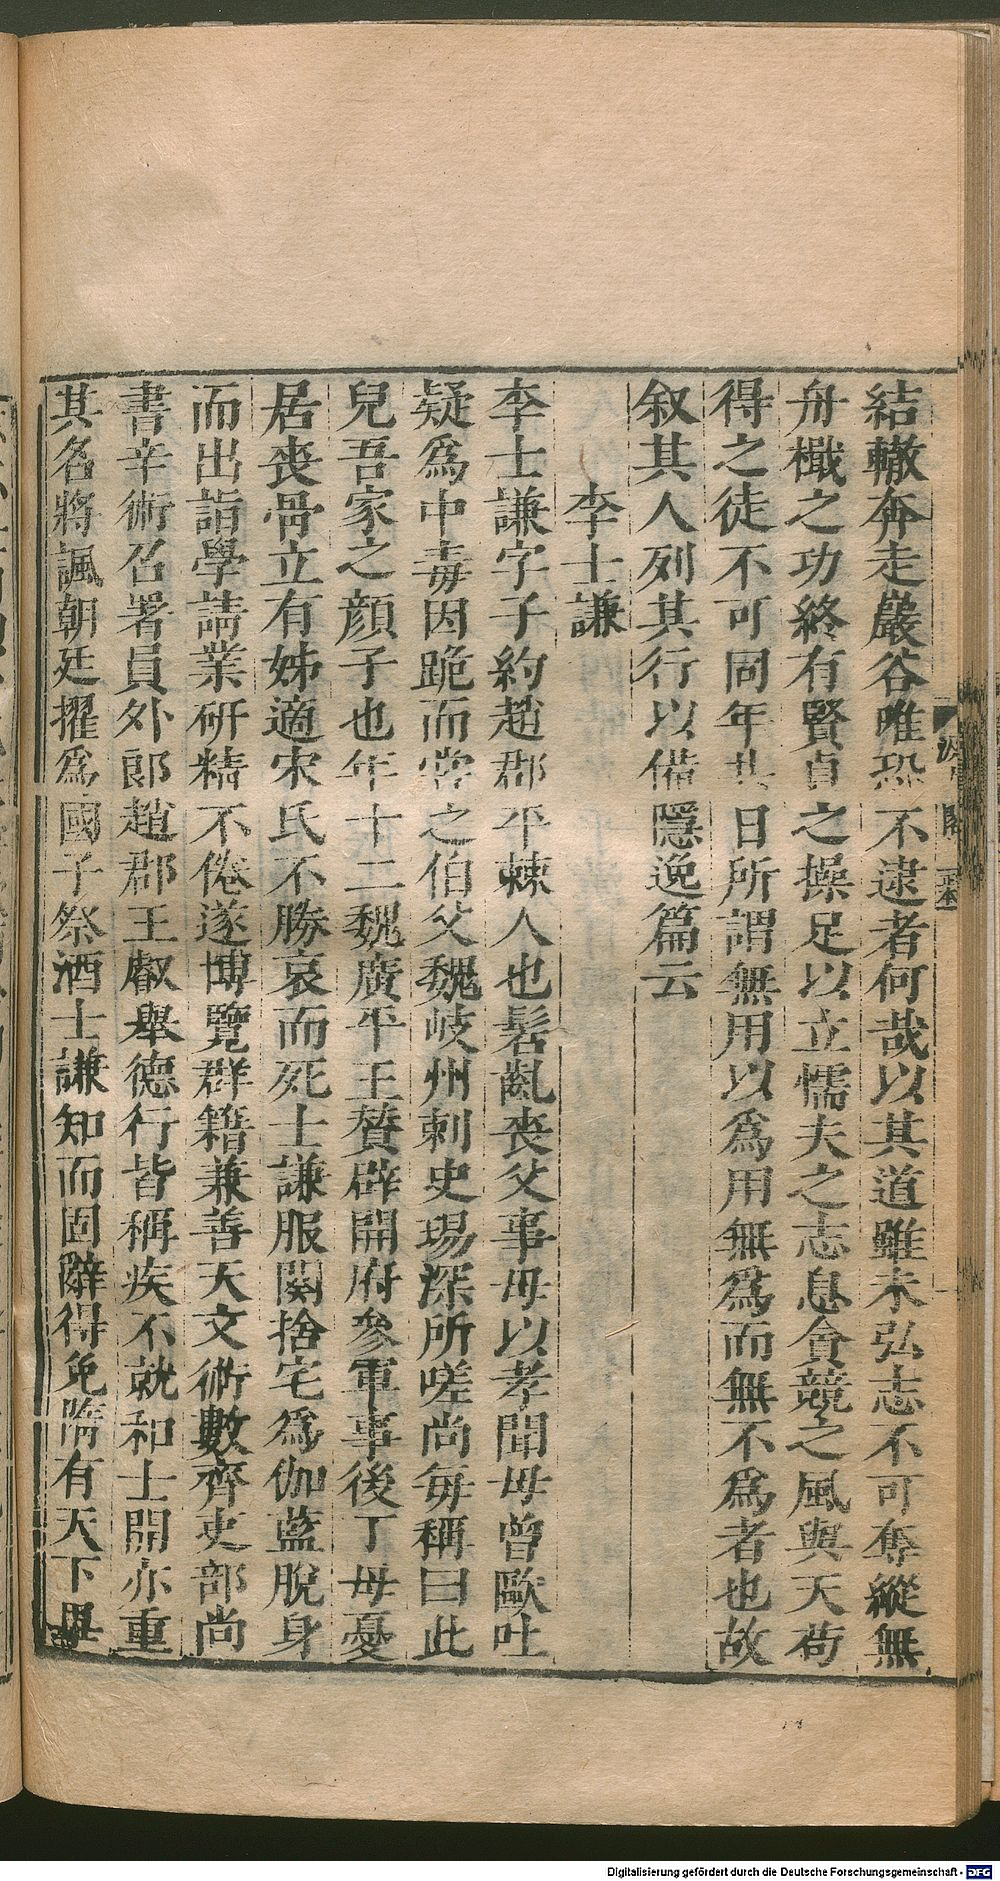 結轍奔走巖谷唯恐不逮者何哉以其道雖未弘志不可奪縱無
舟檝之功終有賢貞之操足以立懦夫之志息貪競之風與夫苟
得之徒不可同年共日所謂無用以爲用無爲而無不爲者也故
叙其人列其行以備隱逸篇云
李士謙
李士謙字子約趙郡平棘人也髫齔喪父事母以孝聞母曾歐吐
疑爲中毒因跪而嘗之伯父魏岐州刺史瑒深所嗟尚每稱曰此
兒吾家之顔子也年十二魏廣平王贊辟開府參軍事後丁母憂
居喪骨立有姊適宋氏不勝哀而死士謙服闋捨宅爲伽藍脫身
而出詣學請業研精不倦遂博覽群籍兼善天文術數齊吏部尚
書辛術召署員外郎趙郡王叡舉德行皆稱疾不就和士開亦重
其名將諷朝廷擢爲國子祭酒士謙知而固辭得免隋有天下畢
Digitalisierung gefördert durch die Deutsche Forschungsgemeinschaft - DFG